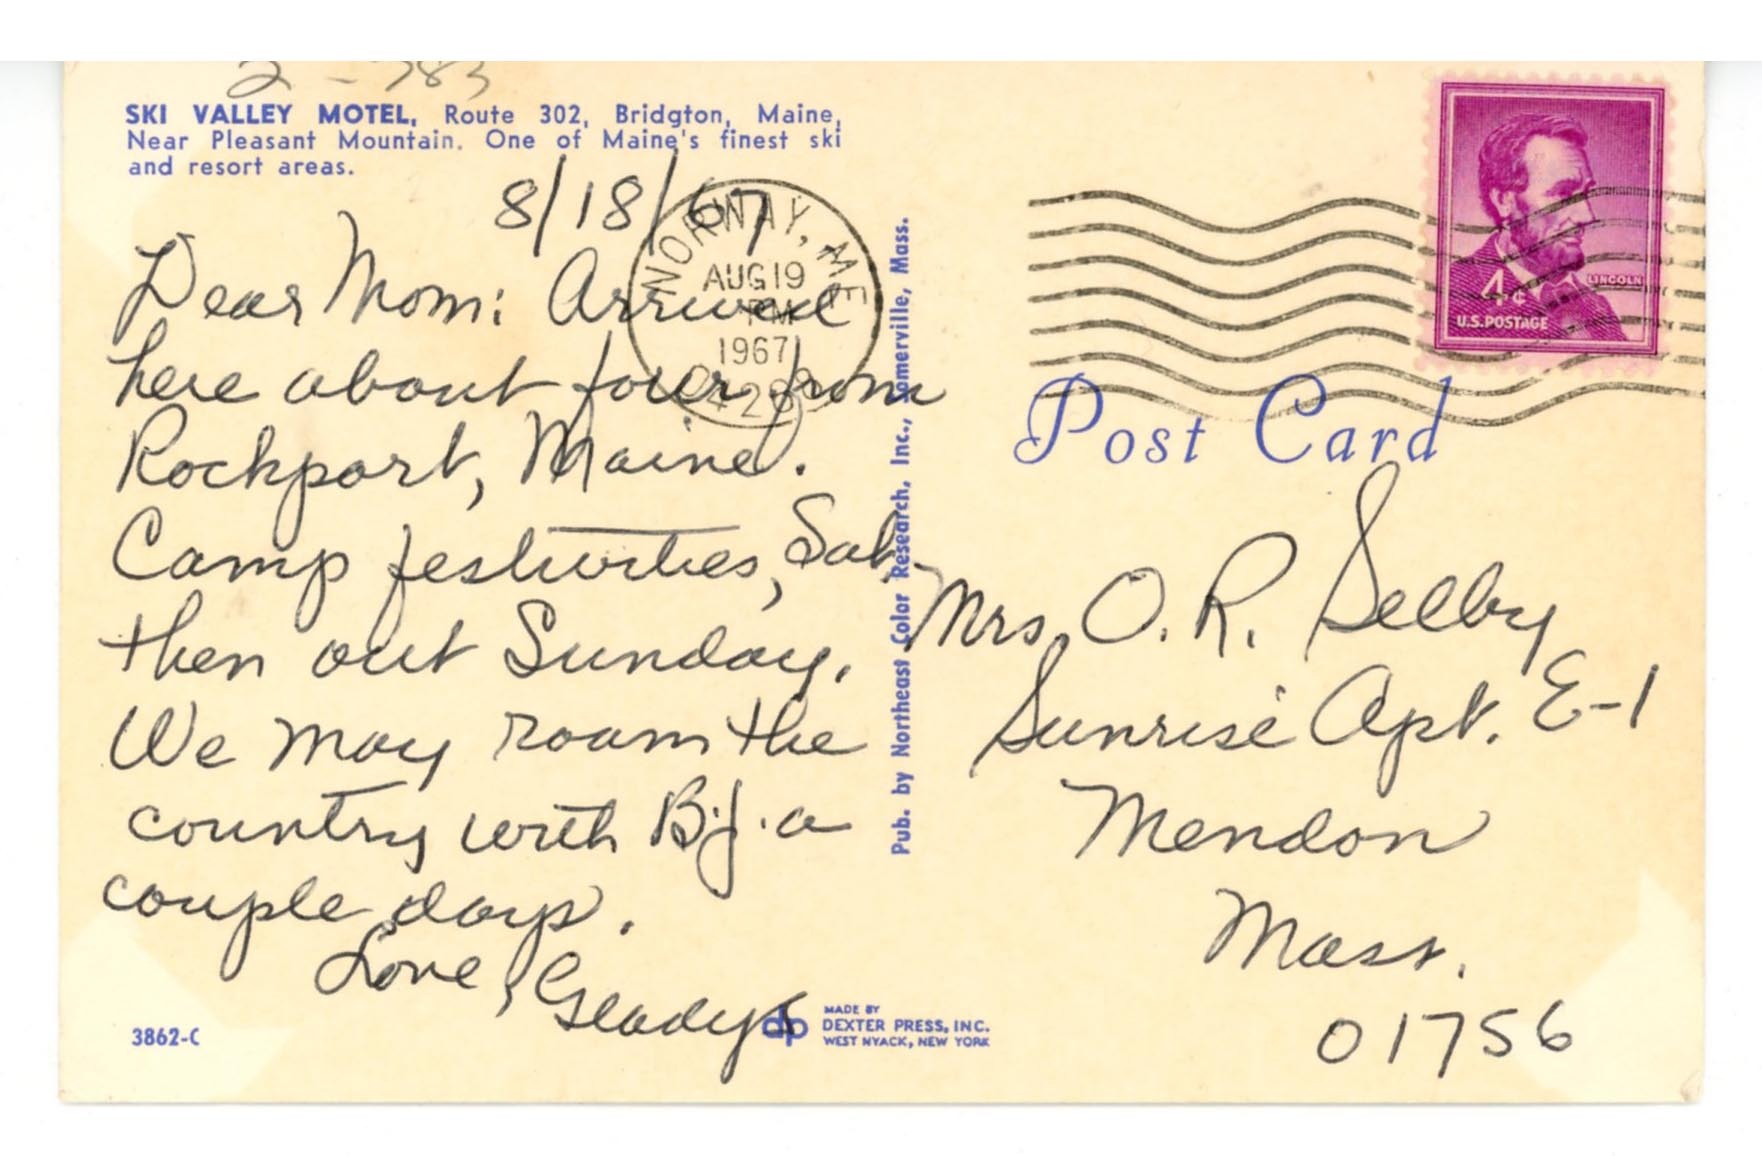 2 - 783
SKI VALLEY MOTEL, Route 302, Bridgton, Maine,
Near Pleasant Mountain. One of Maine's finest ski
and resort areas.
8/18/67
Dear Mom: Arrived
here about four from
Rockport, Maine.
Camp festivities, Sat.
then out Sunday.
We may roam the
country with B.J. a
couple days.
Love, Gladys
3862-C
MADE BY
DEXTER PRESS, INC.
WEST NYACK, NEW YORK
dp
Pub. by Northeast Color Research, Inc., Somerville, Mass.
NORWAY, ME
AUG 19
PM
1967
4¢
LINCOLN
U.S. POSTAGE
Post Card
Mrs. O. R. Selby
Sunrise Apt. E-1
Mendon
Mass.
01756